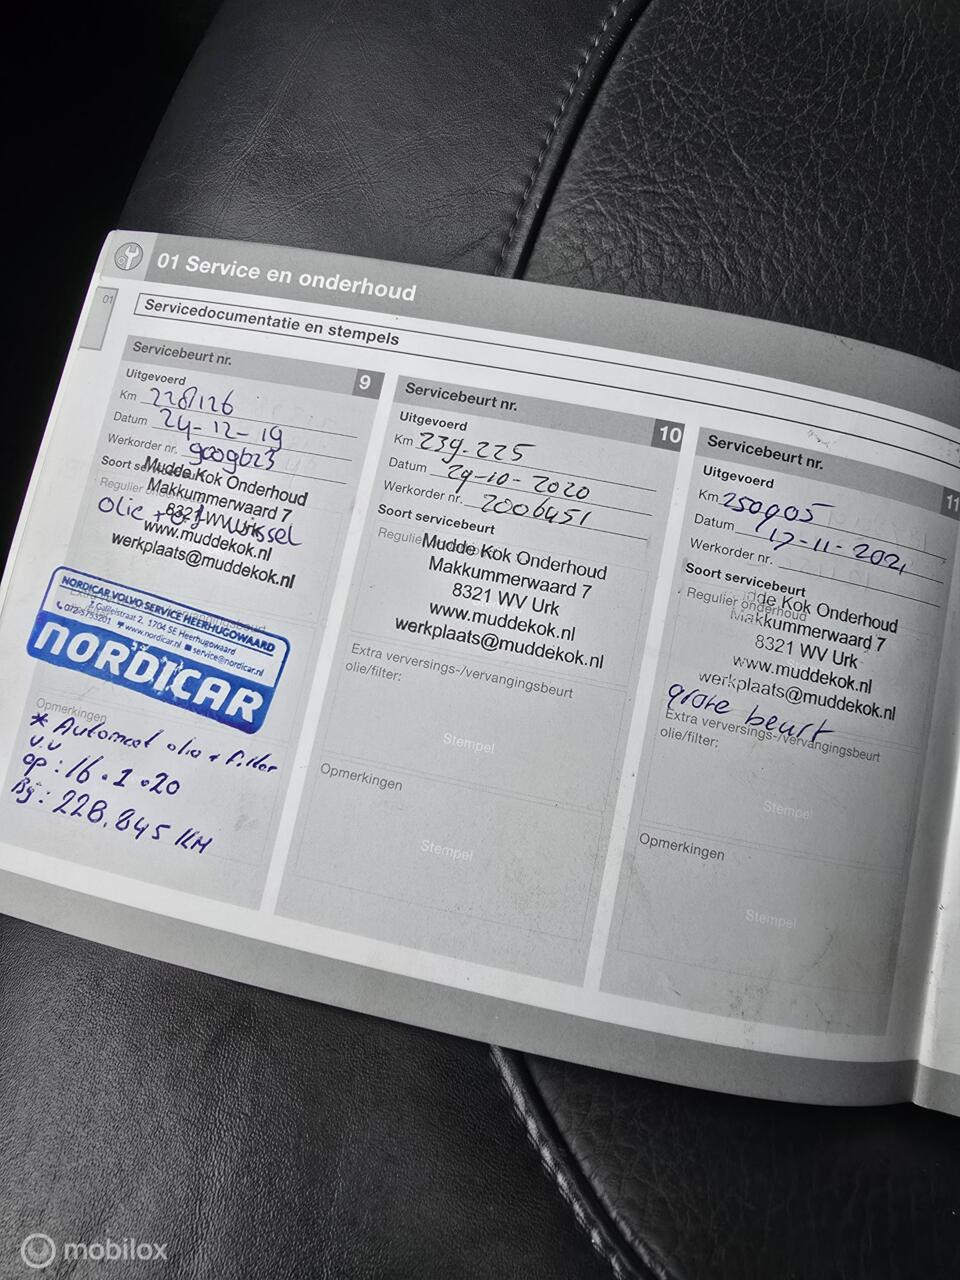 01 Service en onderhoud
01
Servicedocumentatie en stempels
Servicebeurt nr.
9
Uitgevoerd
Km 228126
Datum 24-12-19
Werkorder nr. 9009623
Soort servicebeurt
Regulier onderhoud
Mudde Kok Onderhoud
Makkummerwaard 7
8321 WV Urk
olie + wissel
www.muddekok.nl
werkplaats@muddekok.nl
NORDICAR VOLVO SERVICE HEERHUGOWAARD
Galileistraat 2, 1704 SE Heerhugowaard
072-5753201 www.nordicar.nl service@nordicar.nl
NORDICAR
Opmerkingen
* Automaat olie + filter
v.v
op: 16.1.20
Bij: 228.845 KM
Servicebeurt nr.
10
Uitgevoerd
Km 239.225
Datum 29-10-2020
Werkorder nr. 2006451
Soort servicebeurt
Regulier onderhoud
Mudde Kok Onderhoud
Makkummerwaard 7
8321 WV Urk
www.muddekok.nl
werkplaats@muddekok.nl
Extra verversings-/vervangingsbeurt
olie/filter:
Stempel
Opmerkingen
Stempel
Servicebeurt nr.
11
Uitgevoerd
Km 250905
Datum 17-11-2021
Werkorder nr.
Soort servicebeurt
Regulier onderhoud
Mudde Kok Onderhoud
Makkummerwaard 7
8321 WV Urk
www.muddekok.nl
werkplaats@muddekok.nl
grote beurt
Extra verversings-/vervangingsbeurt
olie/filter:
Stempel
Opmerkingen
Stempel
mobilox